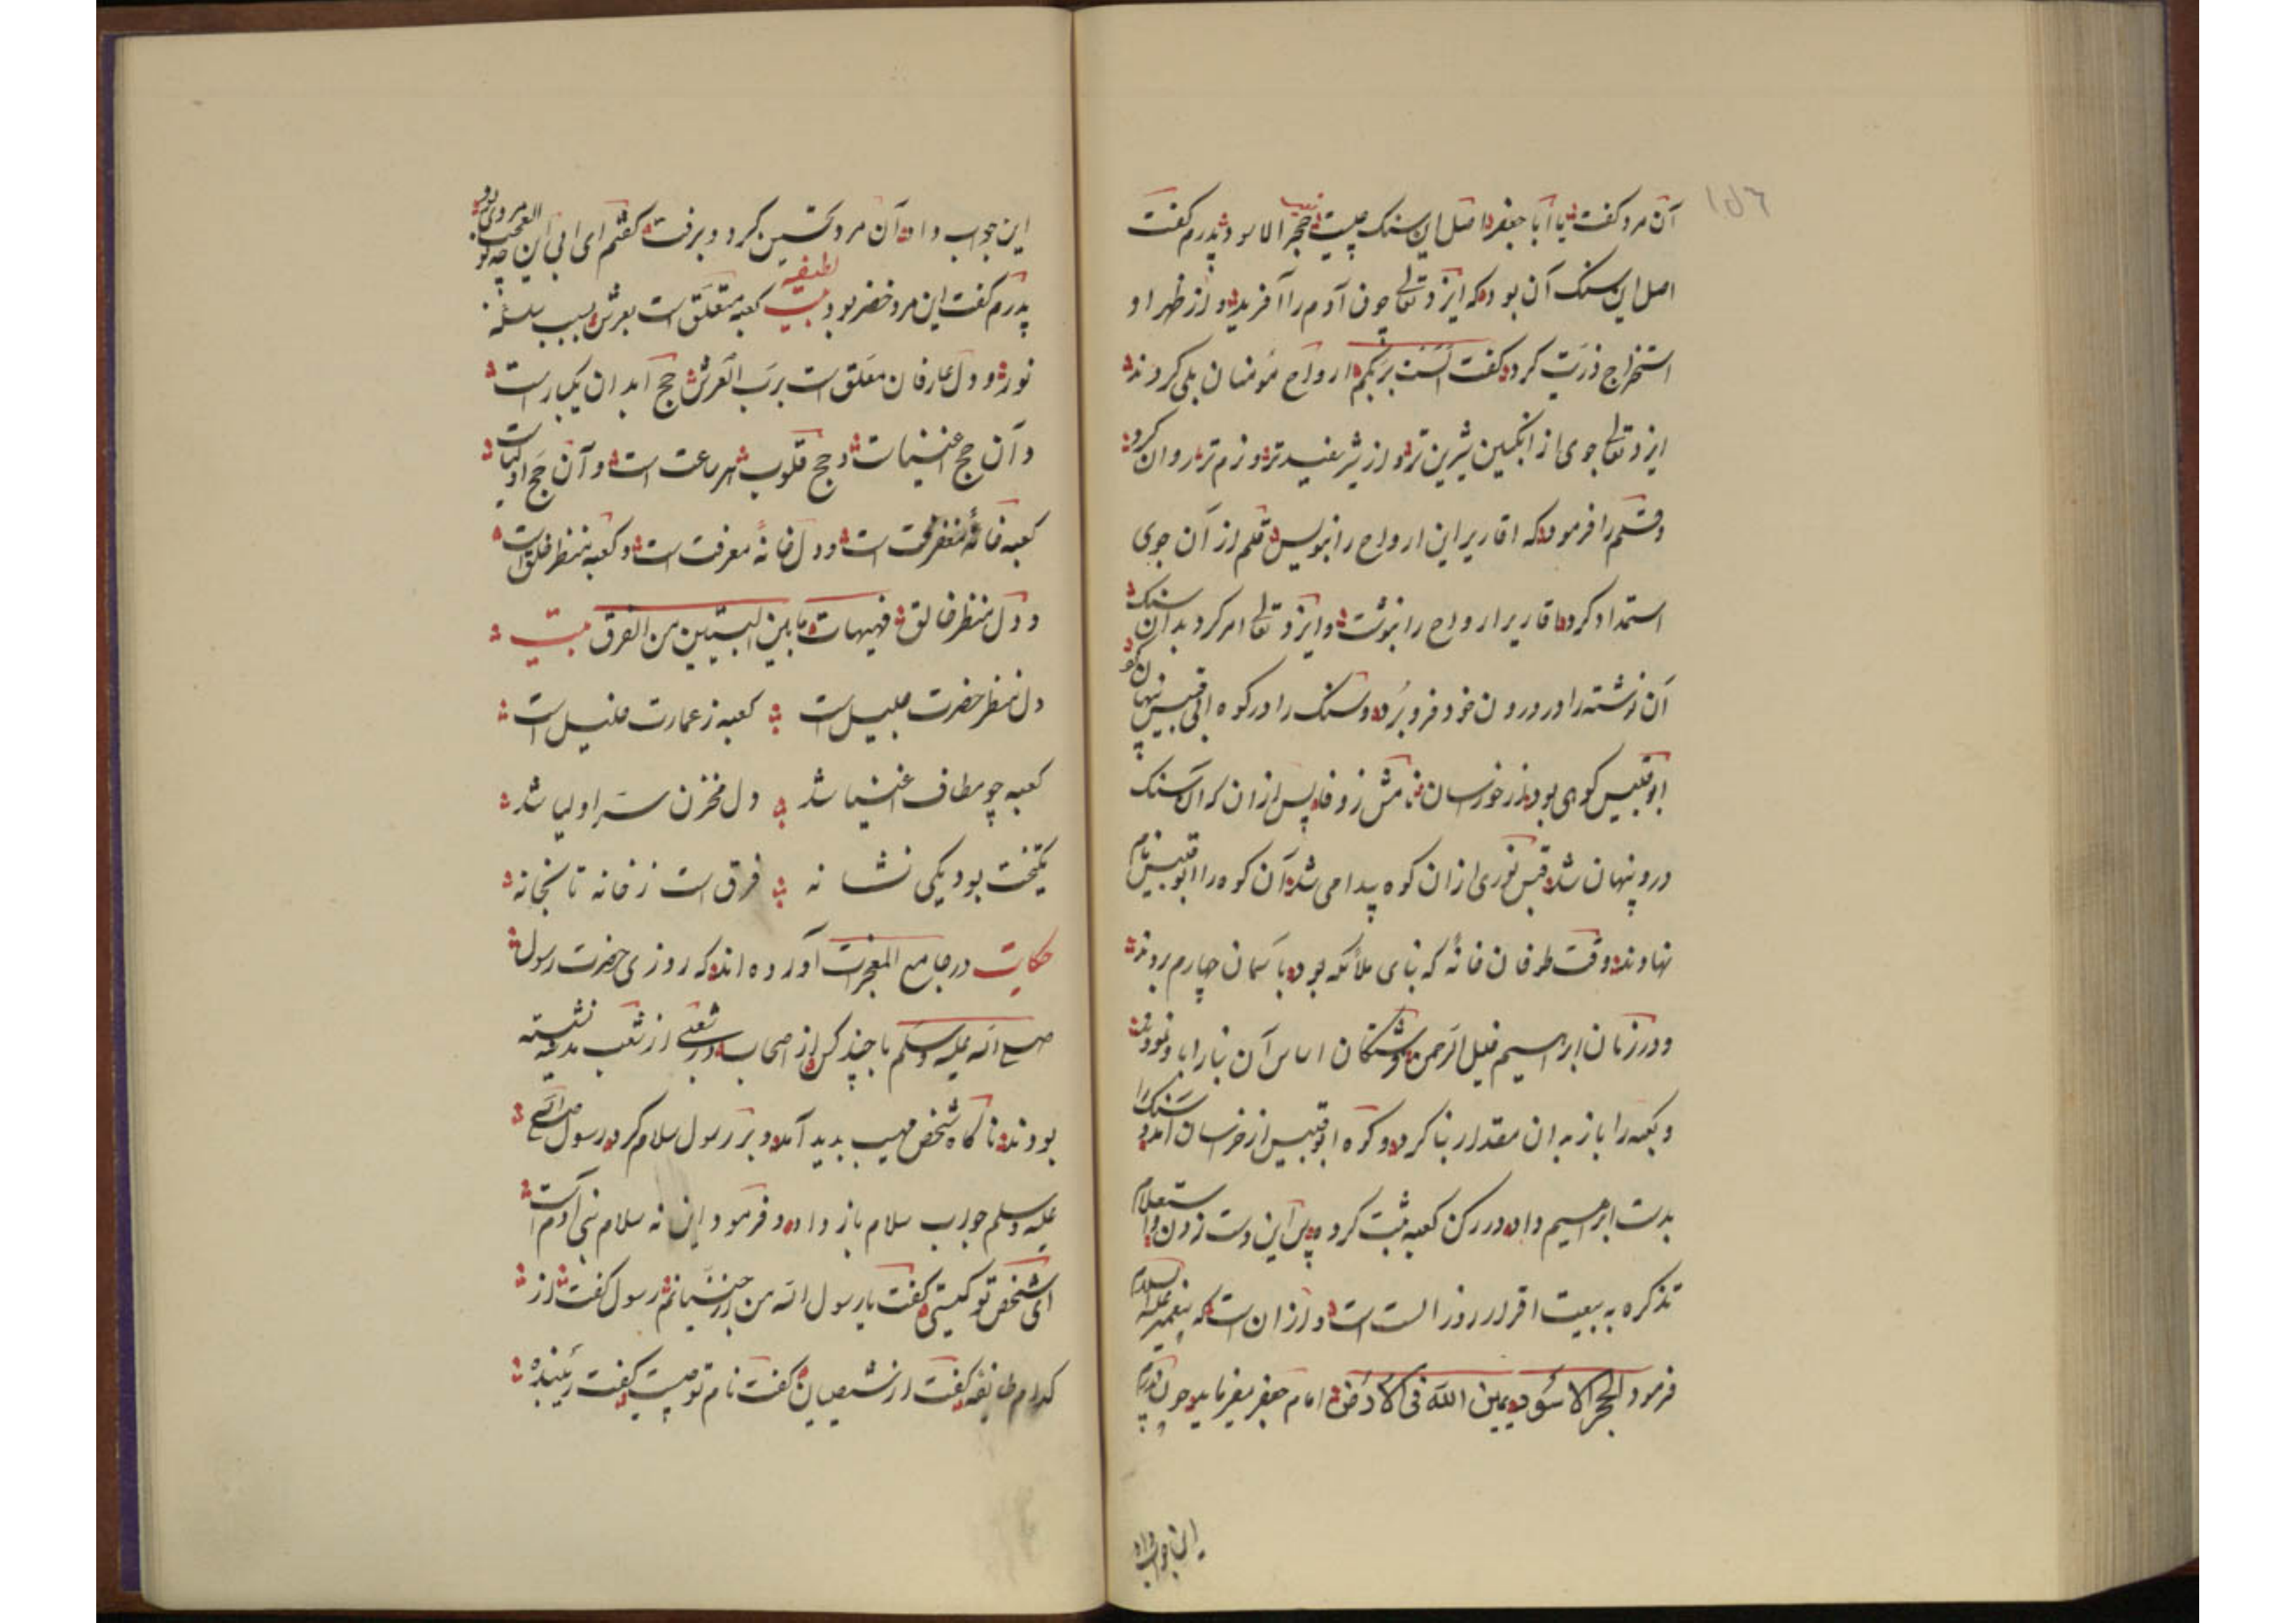 ١٥٦
آن مرد کفت یا ابا جعفر اصل این سنک چیست حجر الاسود پدرم کفت
اصل این سنک آن بود که ایزد تعالی چون آدم را آفرید و از ظهر او
استخراج ذریت کرد و کفت الست بربکم ارواح مؤمنان بلی کردند
ایزد تعالی جوی از انکبین شیرین تر و از شیر سفیدتر و نرم تر روان کرد
و قلم را فرمود که اقاریر این ارواح را بنویس قلم از آن جوی
استمداد کرد اقاریر ارواح را نبوشت و ایزد تعالی امر کرد بدان سنک
آن نوشته را در درون خود فرو برد و سنک را در کوه ابی قبیس پنهان کرد
ابوقبیس کوهی بود در خورسان نامش زوفا پس ازان که آن سنک
درو پنهان شد قبس نوری ازان کوه پیدا می شد آن کوه را ابوقبیس نام
نهادند وقت طوفان خانه که بنای ملائکه بود بآسمان چهارم بردند
و در زمان ابراهیم خلیل الرحمن فرشتکان اساس آن بنا را باو نمودند
و کعبه را باز بدان مقدار بنا کرد و کوه ابوقبیس از خرسان آمد و سنک را
بدست ابراهیم داد در رکن کعبه ثبت کرد پس این دست زدن و استعلام
تذکره به بیعت اقرار روز الست است و ازان است که پیغمبر علیه السلام
فرمود الحجر الاسود یمین الله فی الارض امام جعفر میفرماید چون پدرم
این جواب داد
این جواب داد آن مرد تحسین کرد و برفت کفتم ای ابی این
پدرم کفت این مرد خضر بود لطیفه بیت کعبه متعلق است بعرش بسبب سلسله
نور و دل عارفان معلق است برب العرش حج ابدان یکبار است
و آن حج اغنیاست و حج قلوب هر ساعت است و آن حج اولیاست
کعبه خانهٔ مغفرت است و دل خانهٔ معرفت است و کعبه منظر خلق است
و دل منظر خالق فهیهات ما بین البیتین من الفرق بیت
دل منظر حضرت جلیل است کعبه ز عمارت خلیل است
کعبه چو مطاف اغنیا شد دل مخزن سر اولیا شد
یکتخت بود یکی نشانه فرق است ز خانه تا بخانه
حکایت در جامع المعجزات آورده اند که روزی حضرت رسول
صلی الله علیه وسلم با چند کس از اصحاب در شعبی از شعب مدینه نشسته
بودند ناکاه شخص مهیب پدید آمد و بر رسول سلام کرد رسول صلی الله
علیه وسلم جواب سلام باز داد و فرمود این نه سلام بنی آدم است
ای شخص تو کیستی کفت یا رسول الله من از جنیانم رسول کفت از
کدام طایفه کفت از شیصیان کفت نام تو چیست کفت